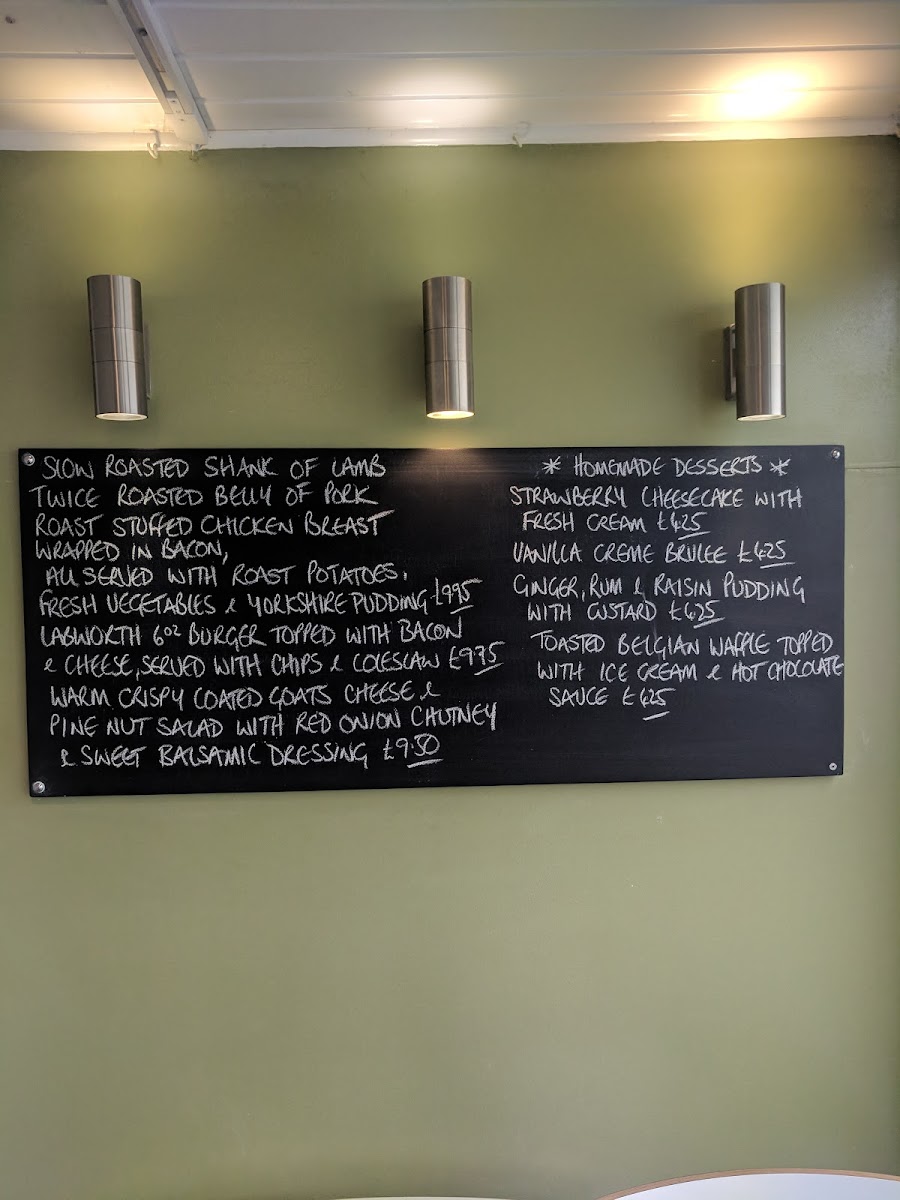 SLOW ROASTED SHANK OF LAMB
TWICE ROASTED BELLY OF PORK
ROAST STUFFED CHICKEN BREAST
WRAPPED IN BACON,
ALL SERVED WITH ROAST POTATOES,
FRESH VEGETABLES & YORKSHIRE PUDDING £995
LABWORTH 6oz BURGER TOPPED WITH BACON
& CHEESE, SERVED WITH CHIPS & COLESLAW £975
WARM CRISPY COATED GOATS CHEESE &
PINE NUT SALAD WITH RED ONION CHUTNEY
& SWEET BALSAMIC DRESSING £9.50
* HOMEMADE DESSERTS *
STRAWBERRY CHEESECAKE WITH
FRESH CREAM £425
VANILLA CREME BRULEE £425
GINGER, RUM & RAISIN PUDDING
WITH CUSTARD £425
TOASTED BELGIAN WAFFLE TOPPED
WITH ICE CREAM & HOT CHOCOLATE
SAUCE £425